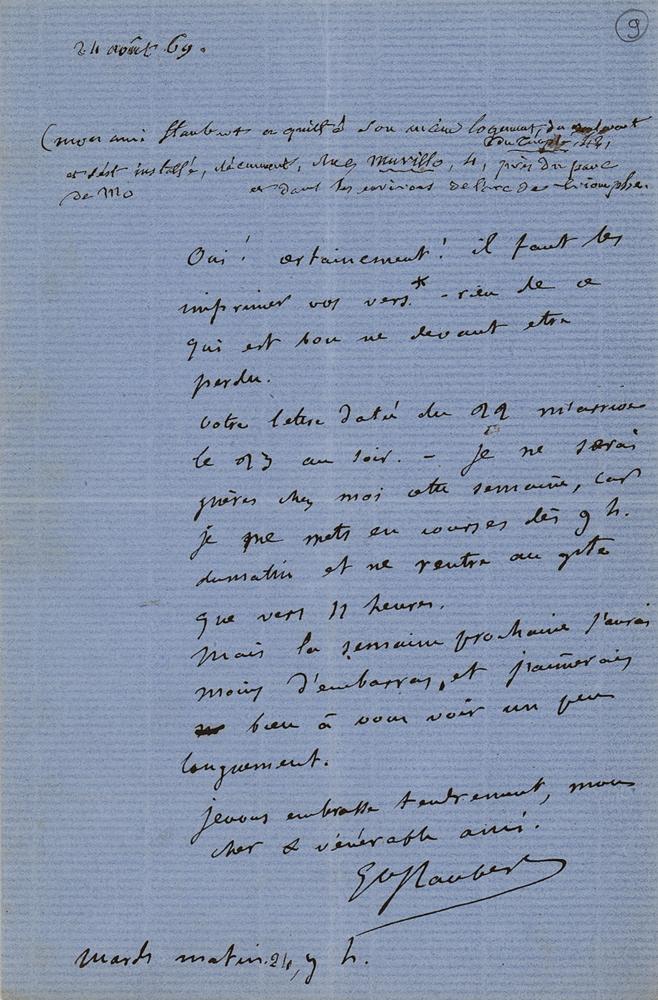 9
24 août 69.
(mon ami Flaubert a quitté son vieux logement, du boulevart
du Temple, 42,
et s'est installé, récemment, rue Murillo, 4, près du parc
de Mo et dans les environs de l'arc de triomphe.
Oui! certainement! il faut les
imprimer vos vers.* - rien de ce
qui est bon ne devant etre
perdu.
Votre lettre datée du 22 m'arrive
le 23 au soir. - Je ne serai
guères chez moi cette semaine, car
je me mets en courses dès 9 h.
du matin et ne rentre au gite
que vers 11 heures.
Mais la semaine prochaine j'aurai
moins d'embarras, et j'aimerais
bien à vous voir un peu
longuement.
je vous embrasse tendrement, mon
cher & vénérable ami.
Gve Flaubert
Mardi matin. 24, 9 h.